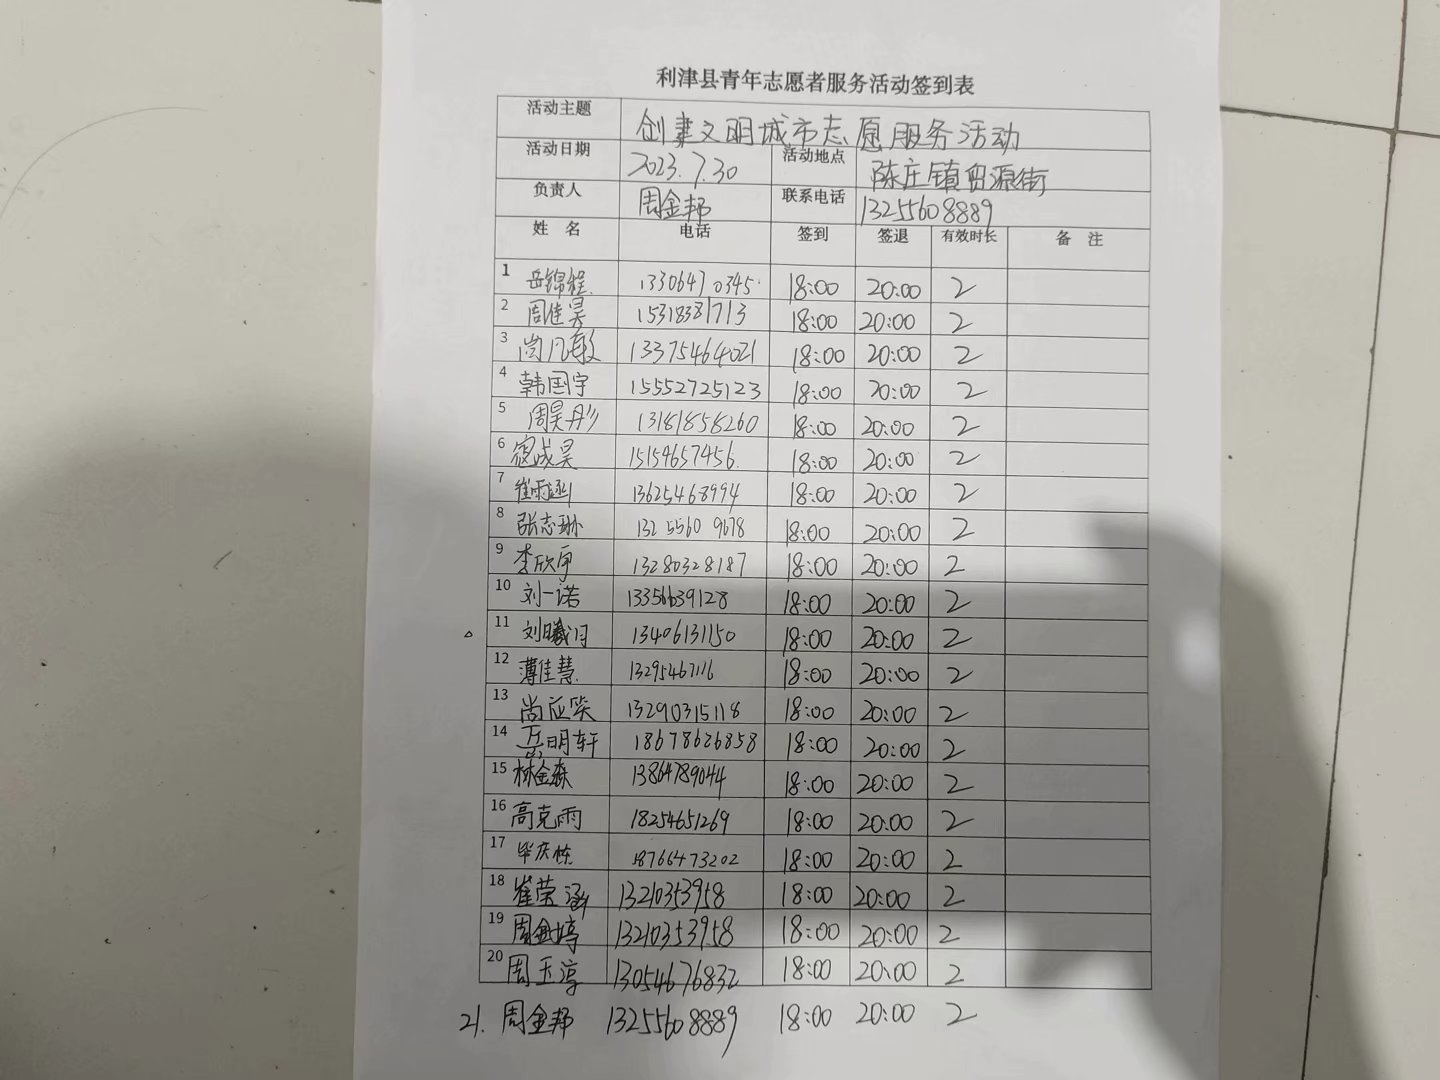 利津县青年志愿者服务活动签到表
活动主题 创建文明城市志愿服务活动
活动日期 2023.7.30 活动地点 陈庄镇留源街
负责人 周金邦 联系电话 13255608889
姓 名 电话 签到 签退 有效时长 备 注
1 岳锦程 13306470345 18:00 20:00 2
2 周佳昊 15318381713 18:00 20:00 2
3 尚凡敏 13375464021 18:00 20:00 2
4 韩国宇 15552725123 18:00 20:00 2
5 周昊彤 13181858260 18:00 20:00 2
6 寇成昊 15154657456 18:00 20:00 2
7 崔雨涵 13625468994 18:00 20:00 2
8 张志琳 132 5560 9678 18:00 20:00 2
9 李欣宇 13280328187 18:00 20:00 2
10 刘一诺 13356639128 18:00 20:00 2
11 刘曦 13406131150 18:00 20:00 2
12 薄佳慧 13295467116 18:00 20:00 2
13 尚应笑 13290315118 18:00 20:00 2
14 岳明轩 18678626858 18:00 20:00 2
15 林金森 13864789044 18:00 20:00 2
16 高克雨 18254651269 18:00 20:00 2
17 毕庆栋 18766473202 18:00 20:00 2
18 崔荣涵 13210353958 18:00 20:00 2
19 周金婷 13210353958 18:00 20:00 2
20 周玉淳 13054676832 18:00 20:00 2
21. 周金邦 13255608889 18:00 20:00 2